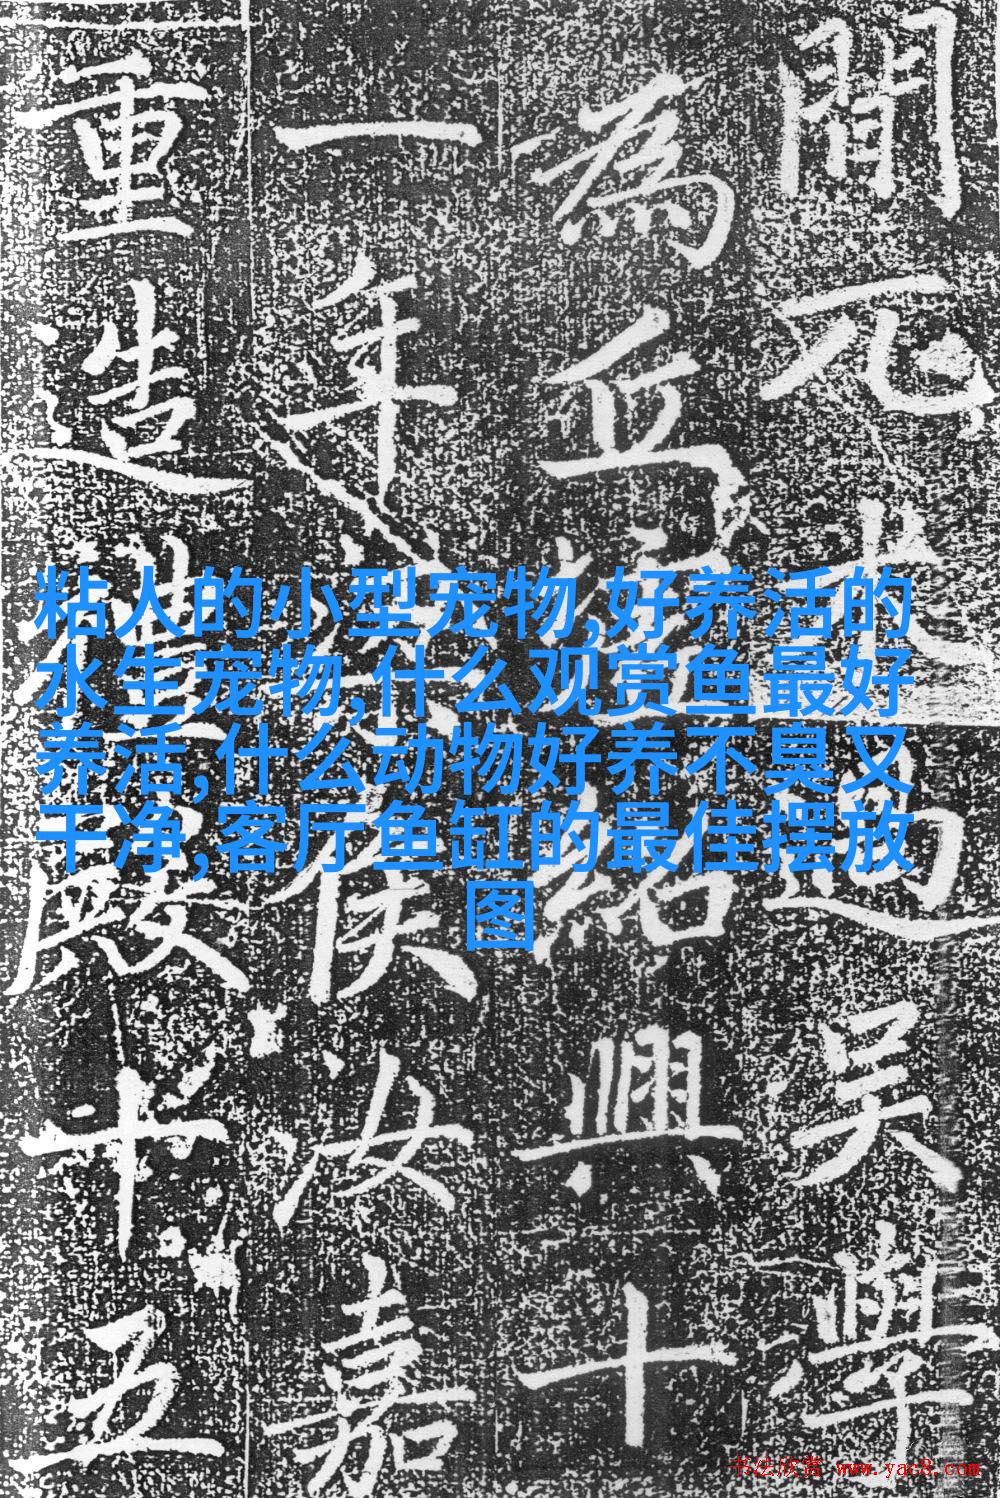 間元吳學
為兵紹興十
一年侯汝嘉
重造殿十五
粘人的小型宠物,好养活的
水生宠物,什么观赏鱼最好
养活,什么动物好养不臭又
干净,客厅鱼缸的最佳摆放
图
书法欣赏 www.yac8.com